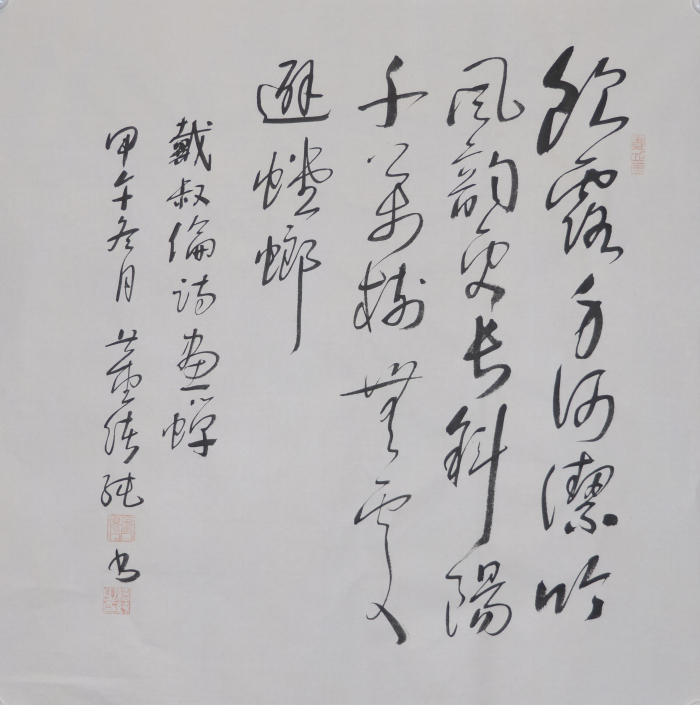 飲露身何潔吟
風韻更長斜陽
千萬樹無處
避螳螂
戴叔倫詩畫蟬
甲午冬月 董 純 书